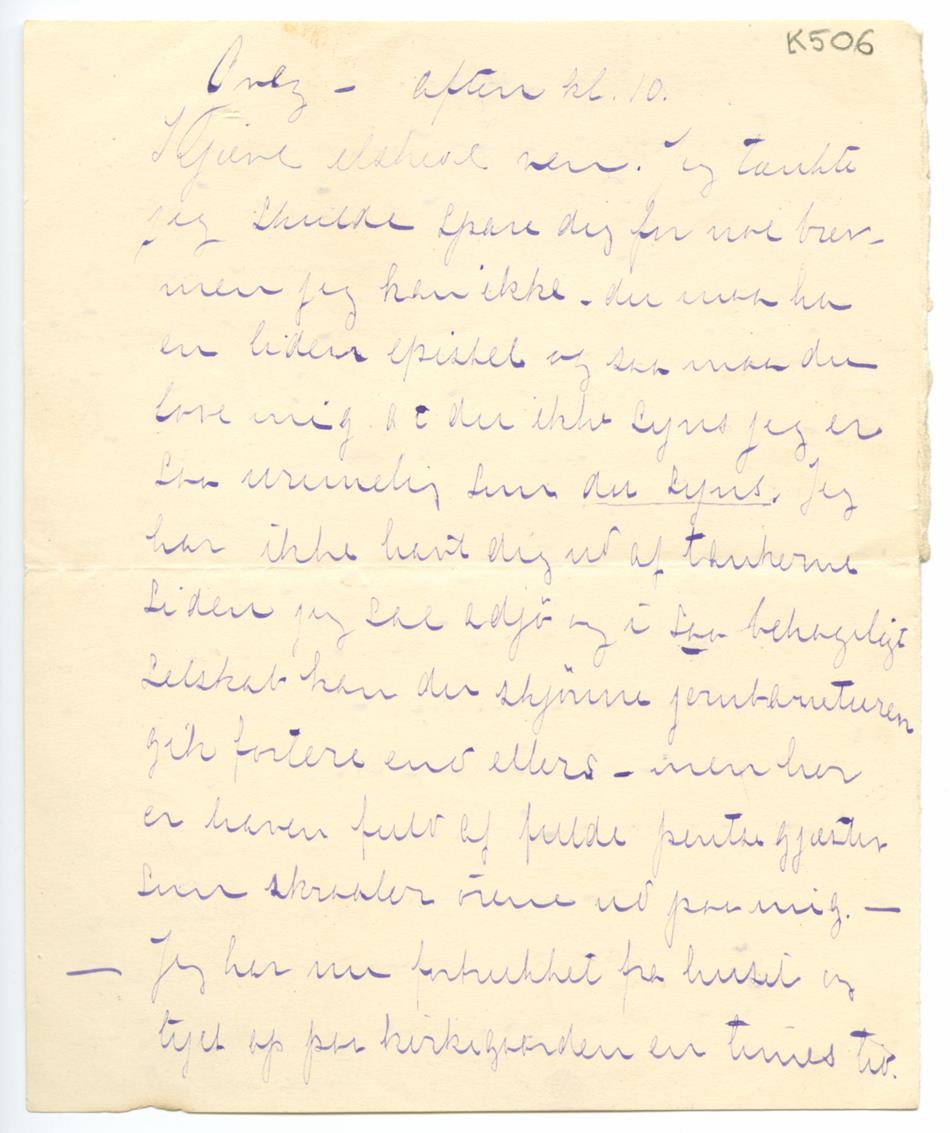 K506
Auvez – aften kl. 10.
Kjære elskede ven. Jeg tænkte
jeg skulde spare dig for noe brev –
men jeg kan ikke – du maa ha
en liden epistel og saa maa du
love mig at du ikke syns jeg er
saa urimelig som du syns. Jeg
har ikke havt dig ud af tankerne
siden jeg sae adjö og i saa behageligt
selskab kan du skjönne jernbaneturen
gik fortere end ellers – men her
er haven fuld af fulde pintsegjæster
som skraaler örene ud paa mig. –
– Jeg har nu fortrukket fra huset og
tyet op paa kirkegaarden en times tid.